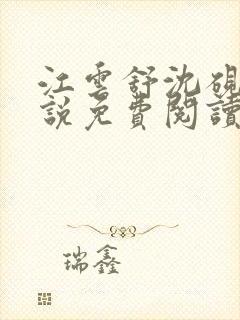 江雲舒沈硯
說免費閱讀
瑞鑫